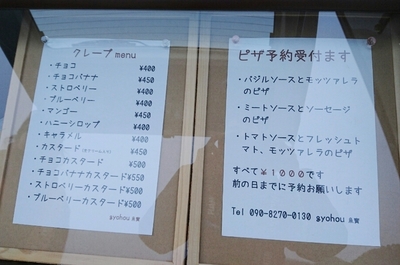 クレープ menu
・チョコ ¥400
・チョコバナナ ¥450
・ストロベリー ¥400
・ブルーベリー ¥400
・マンゴー ¥450
・ハニーシロップ ¥400
・キャラメル ¥400
・カスタード ¥450
・チョコカスタード ¥500
・チョコバナナカスタード ¥550
・ストロベリーカスタード ¥500
・ブルーベリーカスタード ¥500
ピザ予約受付ます
・バジルソースとモッツァレラ
のピザ
・ミートソースとソーセージ
のピザ
・トマトソースとフレッシュト
マト、モッツァレラのピザ
すべて¥1000です
前の日までに予約お願いします
Tel 090-8270-0130 syohou